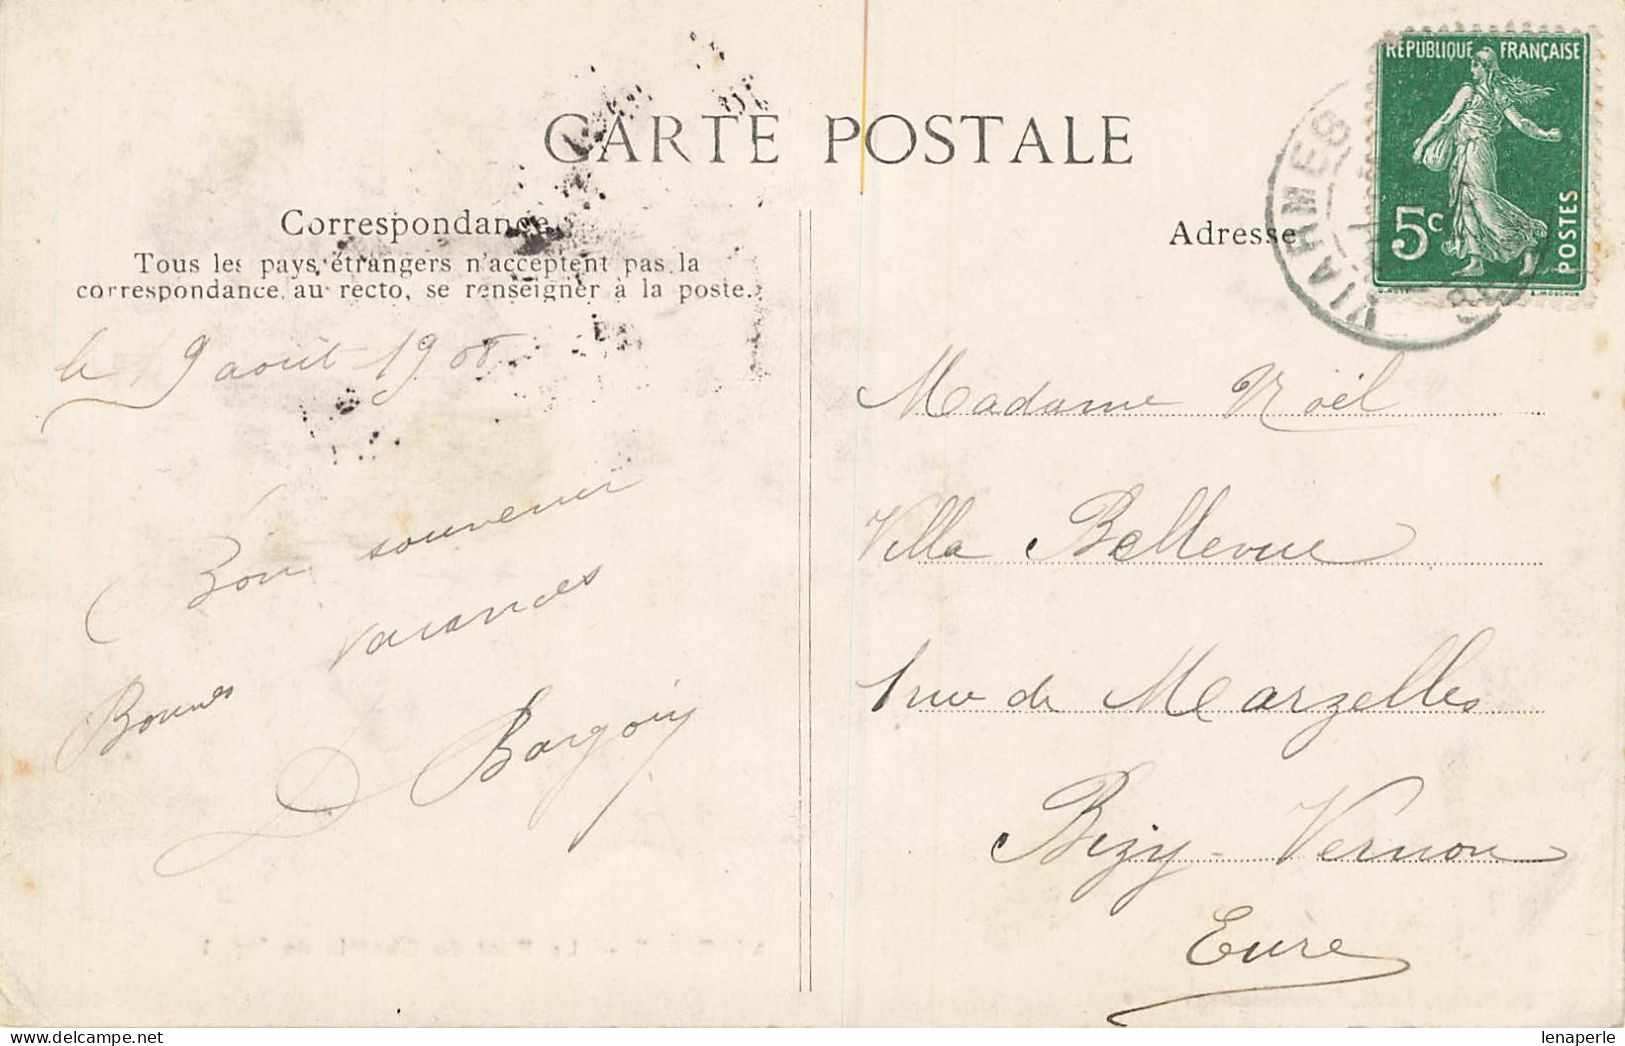 CARTE POSTALE
Correspondance
Tous les pays étrangers n'acceptent pas la
correspondance au recto, se renseigner à la poste.
le 9 août 1908
Bon souvenir
vacances
Bonnes
Adresse
RÉPUBLIQUE FRANÇAISE
5c
POSTES
VIARMES
Madame Noël
Villa Bellevue
1 rue de Marzelles
Bizy-Vernon
Eure
lenaperle